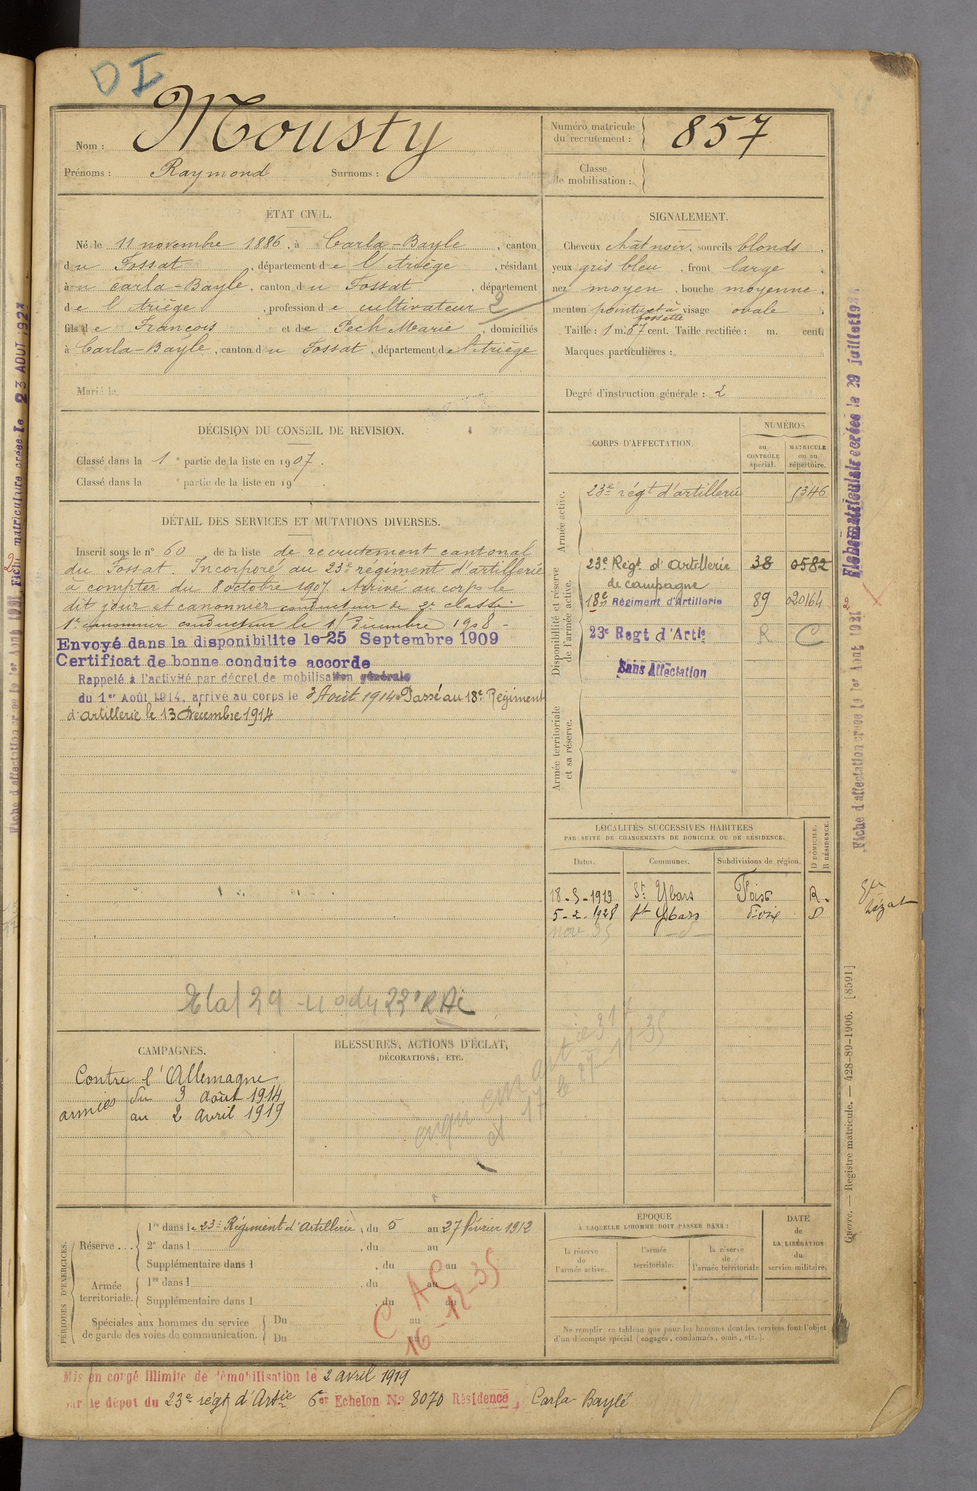 D I
Nom : Mousty
Prénoms : Raymond Surnoms :
Numéro matricule du recrutement : 857
Classe de mobilisation :
ÉTAT CIVIL.
Né le 11 novembre 1886, à Carla-Bayle, canton
du Fossat, département de l'Ariège, résidant
à Carla-Bayle, canton du Fossat, département
de l'Ariège, profession de cultivateur 2
fils de François et de Pech Marie, domiciliés
à Carla-Bayle, canton du Fossat, département de l'Ariège
Marié le
SIGNALEMENT.
Cheveux chat noir, sourcils blonds
yeux gris bleu, front large
nez moyen, bouche moyenne
menton pointu et à fossette visage ovale
Taille : 1 m. 67 cent. Taille rectifiée : m. cent.
Marques particulières :
Degré d'instruction générale : 2
DÉCISION DU CONSEIL DE REVISION.
Classé dans la 1e partie de la liste en 1907.
Classé dans la e partie de la liste en 19
DÉTAIL DES SERVICES ET MUTATIONS DIVERSES.
Inscrit sous le n° 60 de la liste de recrutement cantonal
du Fossat. Incorporé au 23e régiment d'artillerie
à compter du 8 octobre 1907. Arrivé au corps le
dit jour et canonnier conducteur de 2e classe
1er canonnier conducteur le 1r Décembre 1908 -
Envoyé dans la disponibilite le 25 Septembre 1909
Certificat de bonne conduite accorde
Rappelé à l'activité par décret de mobilisation générale
du 1er Août 1914, arrivé au corps le 3 Août 1914. Passé au 18e Régiment
d'artillerie le 13 Décembre 1914
CORPS D'AFFECTATION.
NUMÉROS
au CONTRÔLE spécial.
MATRICULE ou au répertoire.
Armée active.
23e régt d'artillerie 1346
Disponibilité et réserve de l'armée active.
23e Régt d'Artillerie de campagne 38 0582
18e Régiment d'Artillerie 89 020164
23e Regt d'Artie R C
Sans Affectation
Armée territoriale et sa réserve.
LOCALITÉS SUCCESSIVES HABITÉES
PAR SUITE DE CHANGEMENTS DE DOMICILE OU DE RÉSIDENCE.
Dates. Communes. Subdivisions de région. D DOMICILE. R RÉSIDENCE.
18-5-1919 St Ybars Foix R.
5-2-1928 St Ybars Foix D
nov 35
CAMPAGNES.
Contre l'Allemagne
armées du 3 août 1914
au 2 avril 1919
BLESSURES, ACTIONS D'ÉCLAT,
DÉCORATIONS, ETC.
PÉRIODES D'EXERCICES.
Réserve... 1re dans le 23e Régiment d'Artillerie, du 5 au 27 février 1912
2e dans l , du au
Supplémentaire dans l , du au
Armée territoriale. 1re dans l , du au
Supplémentaire dans l , du au
Spéciales aux hommes du service de garde des voies de communication. Du au
Du au
C A C
16-12-35
ÉPOQUE
À LAQUELLE L'HOMME DOIT PASSER DANS :
la réserve de l'armée active.
l'armée territoriale.
la réserve de l'armée territoriale
DATE de LA LIBÉRATION du service militaire.
Ne remplir ce tableau que pour les hommes dont les services font l'objet
d'un décompte spécial (engagés, condamnés, omis, etc.).
Mis en congé illimité de démobilisation le 2 avril 1919
par le dépot du 23e régt d'Artie 6er Echelon No 8070 Résidence, Carla-Bayle
Fiche matriculaire créée le 29 juillet 19
Fiche d'affectation créée le 1er Août 1921
Guerre. — Registre matricule. — 428-89-1906. [8591]
Fiche matriculaire créée le 23 AOUT 192
Fiche d'affectation créée le 1er Août 1921